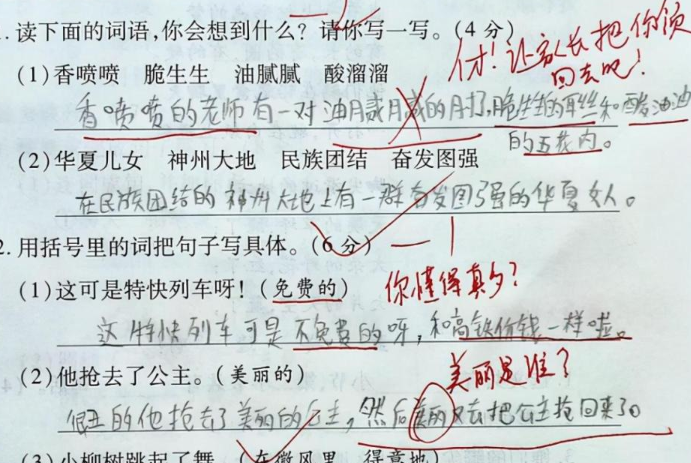 1.读下面的词语,你会想到什么?请你写一写。(4分)
付!让家长把你领回去吧!
(1)香喷喷 脆生生 油腻腻 酸溜溜
香喷喷的老师有一对油腻腻的肘子,脆生生的耳丝和酸溜溜
的五花肉。
(2)华夏儿女 神州大地 民族团结 奋发图强
在民族团结的神州大地上有一群奋发图强的华夏女人。
2.用括号里的词把句子写具体。(6分) 一1
(1)这可是特快列车呀!(免费的) 你懂得真多?
这特快列车可是不免费的呀,和高铁价钱一样啦。
(2)他抢去了公主。(美丽的) 美丽是谁?
很丑的他抢去了美丽的公主,然后美丽又去把公主抢回来了。
(3)小柳树跳起了舞。(在微风里 得意地)